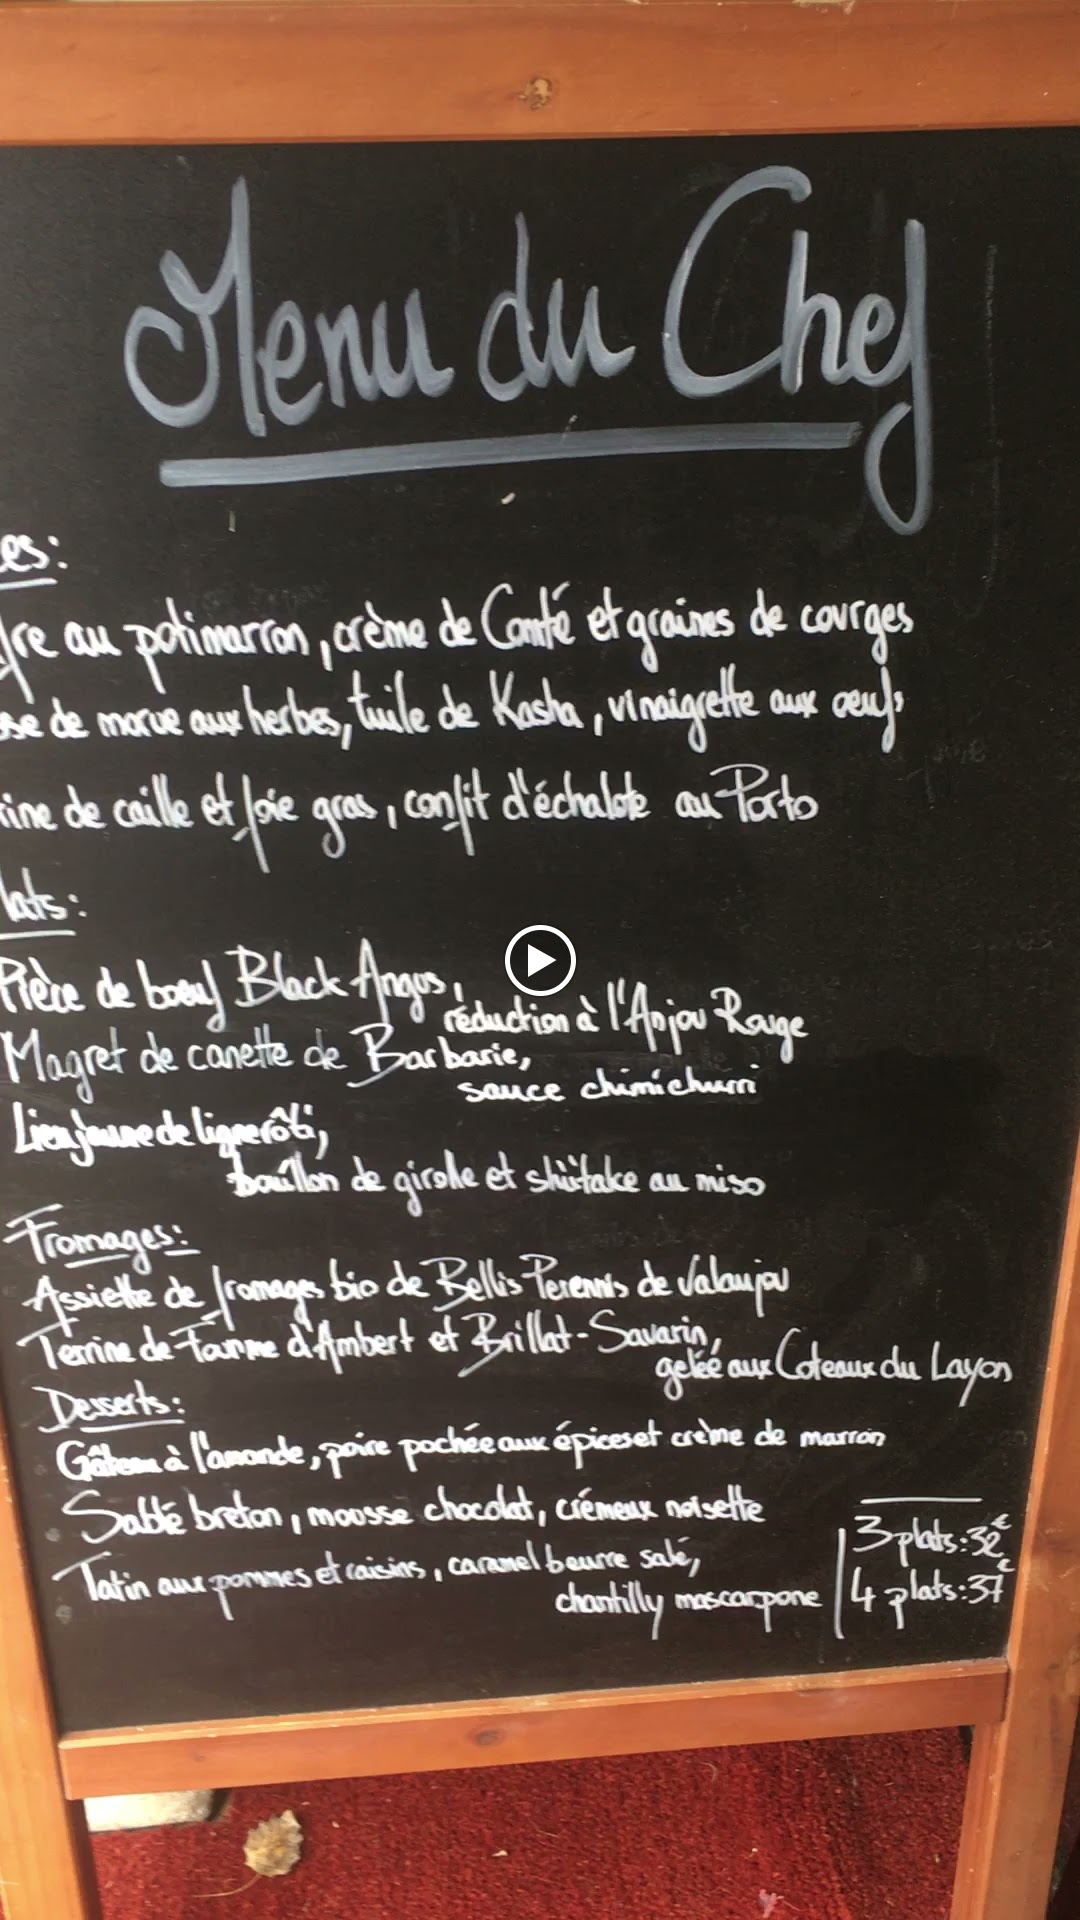 Menu du Chef
es:
fre au potimarron, crème de Comté et graines de courges
se de morue aux herbes, tuile de Kasha, vinaigrette aux oeufs
rine de caille et foie gras, confit d'échalote au Porto
lats:
Pièce de boeuf Black Angus,
réduction à l'Anjou Rouge
Magret de canette de Barbarie,
sauce chimichurri
Lieu jaune de ligne rôti,
bouillon de girolle et shiitake au miso
Fromages:
Assiette de fromages bio de Bellis Perennis de Valanjou
Terrine de Fourme d'Ambert et Brillat-Savarin,
gelée aux Coteaux du Layon
Desserts:
Gâteau à l'amande, poire pochée aux épices et crème de marron
Sablé breton, mousse chocolat, crémeux noisette
Tatin aux pommes et raisins, caramel beurre salé,
chantilly mascarpone
3 plats: 32€
4 plats: 37€